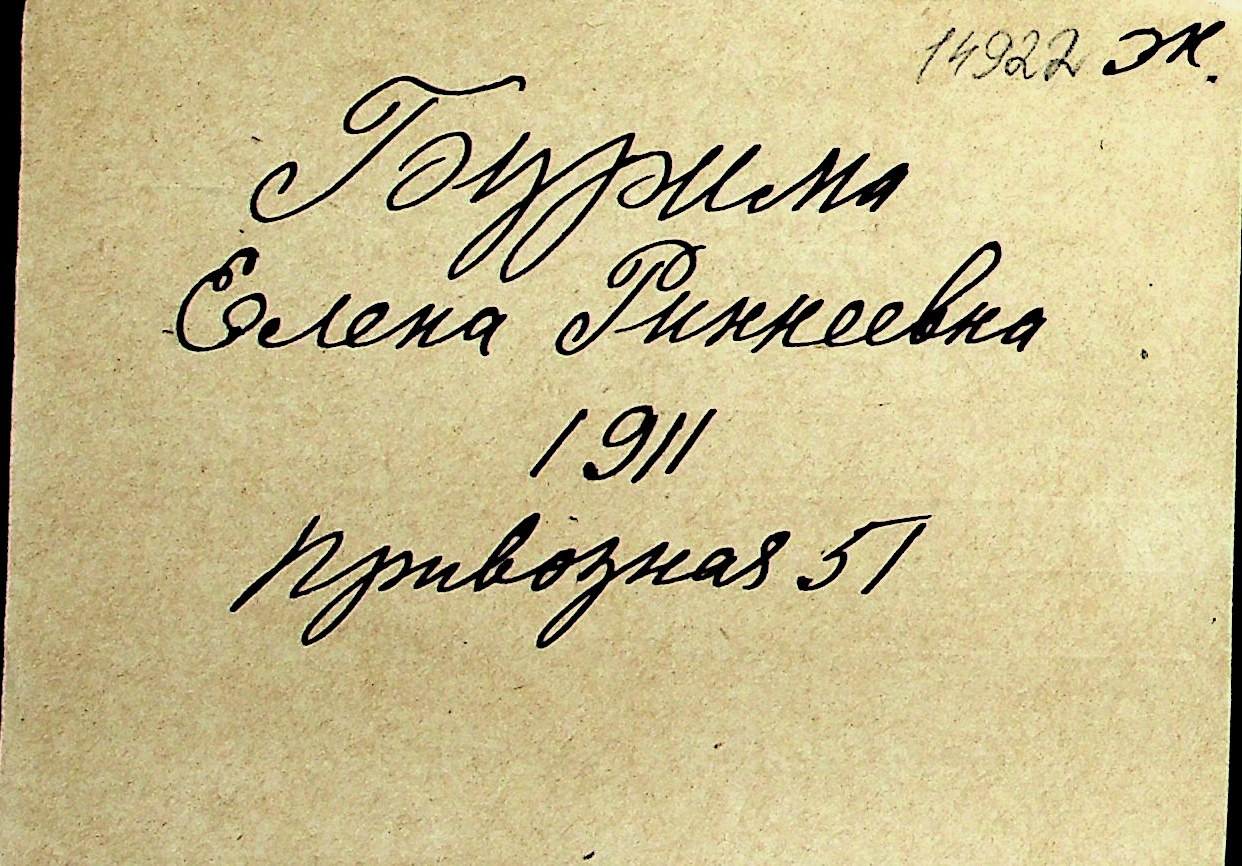 14922 эк.
Бурима
Елена Риннеевна
1911
Привозная 51